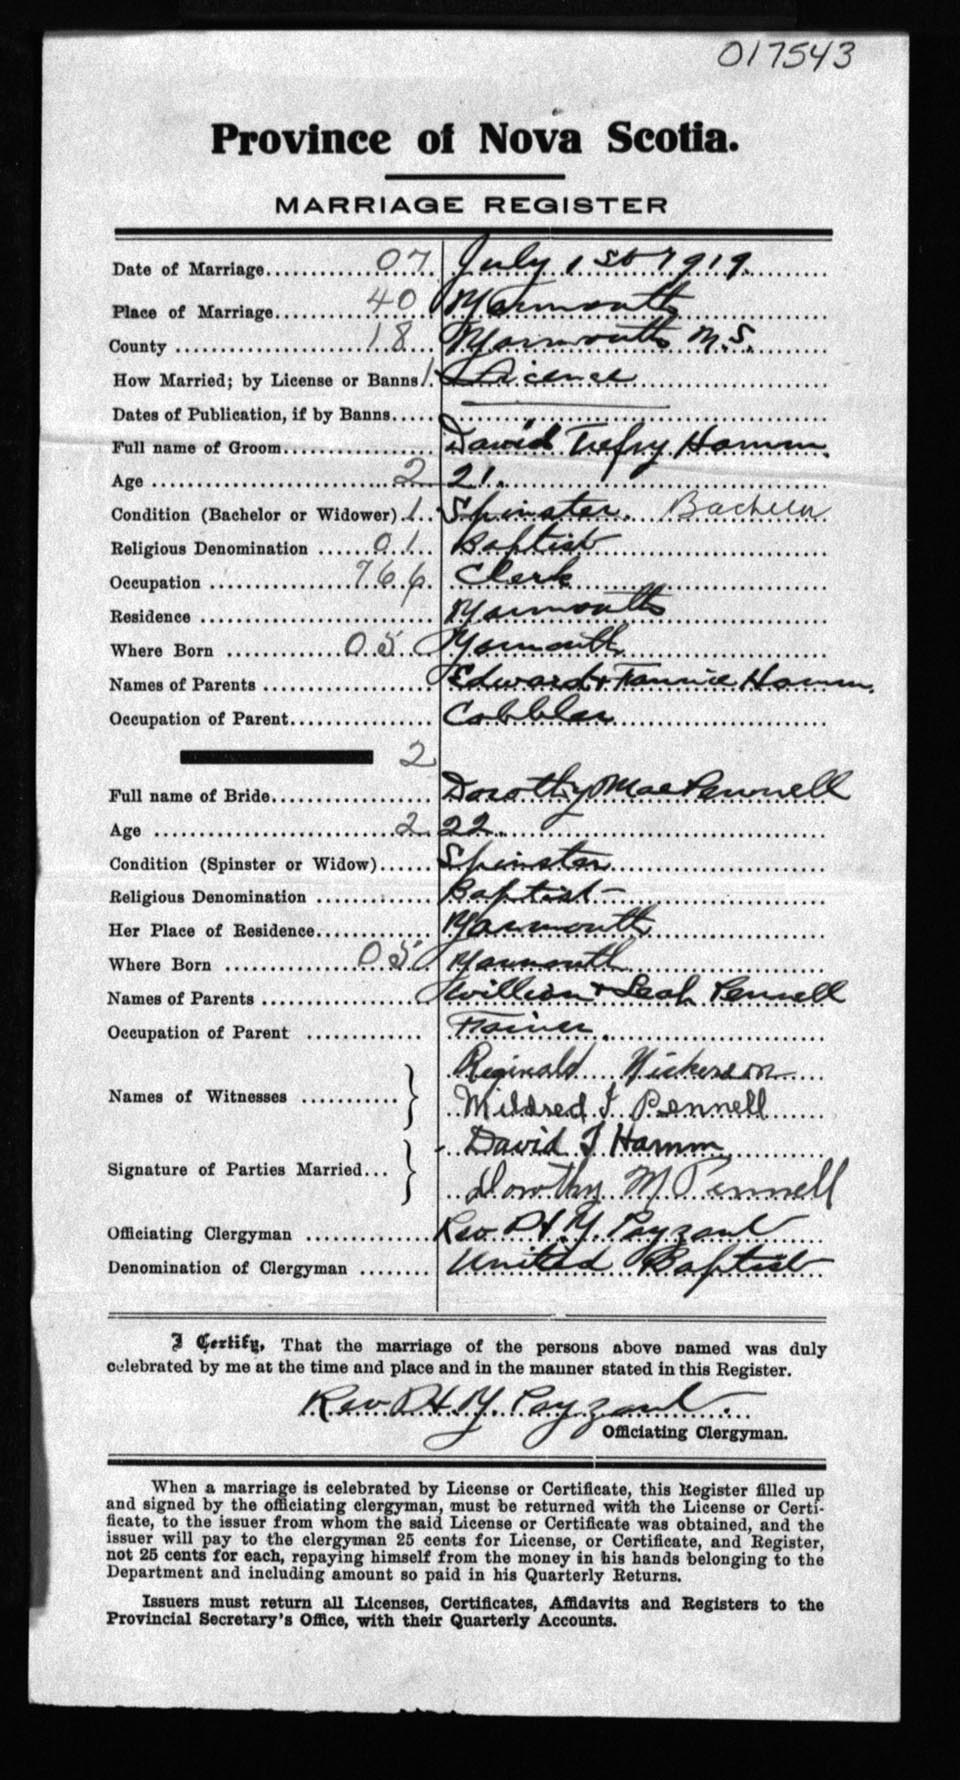 017543
Province of Nova Scotia.
MARRIAGE REGISTER
Date of Marriage 07 July 1st 1919.
Place of Marriage 40 Yarmouth
County 18 Yarmouth N.S.
How Married; by License or Banns 1 Licence
Dates of Publication, if by Banns
Full name of Groom David Trefry Hamm.
Age 2 21.
Condition (Bachelor or Widower) 1 Spinster. Bachelor
Religious Denomination 01 Baptist
Occupation 766 Clerk
Residence Yarmouth
Where Born 05 Yarmouth
Names of Parents Edward + Fannie Hamm.
Occupation of Parent Cobbler
2
Full name of Bride Dorothy Mae Pennell
Age 2 22.
Condition (Spinster or Widow) Spinster
Religious Denomination Baptist
Her Place of Residence Yarmouth
Where Born 05 Yarmouth
Names of Parents William + Leah Pennell
Occupation of Parent
Names of Witnesses Reginald Nickerson
Mildred I Pennell
Signature of Parties Married David T Hamm
Dorothy M Pennell
Officiating Clergyman Rev. H.Y. Payzant
Denomination of Clergyman United Baptist
I Certify, That the marriage of the persons above named was duly
celebrated by me at the time and place and in the manner stated in this Register.
Rev. H.Y. Payzant.
Officiating Clergyman.
When a marriage is celebrated by License or Certificate, this Register filled up
and signed by the officiating clergyman, must be returned with the License or Certi-
ficate, to the issuer from whom the said License or Certificate was obtained, and the
issuer will pay to the clergyman 25 cents for License, or Certificate, and Register,
not 25 cents for each, repaying himself from the money in his hands belonging to the
Department and including amount so paid in his Quarterly Returns.
Issuers must return all Licenses, Certificates, Affidavits and Registers to the
Provincial Secretary's Office, with their Quarterly Accounts.